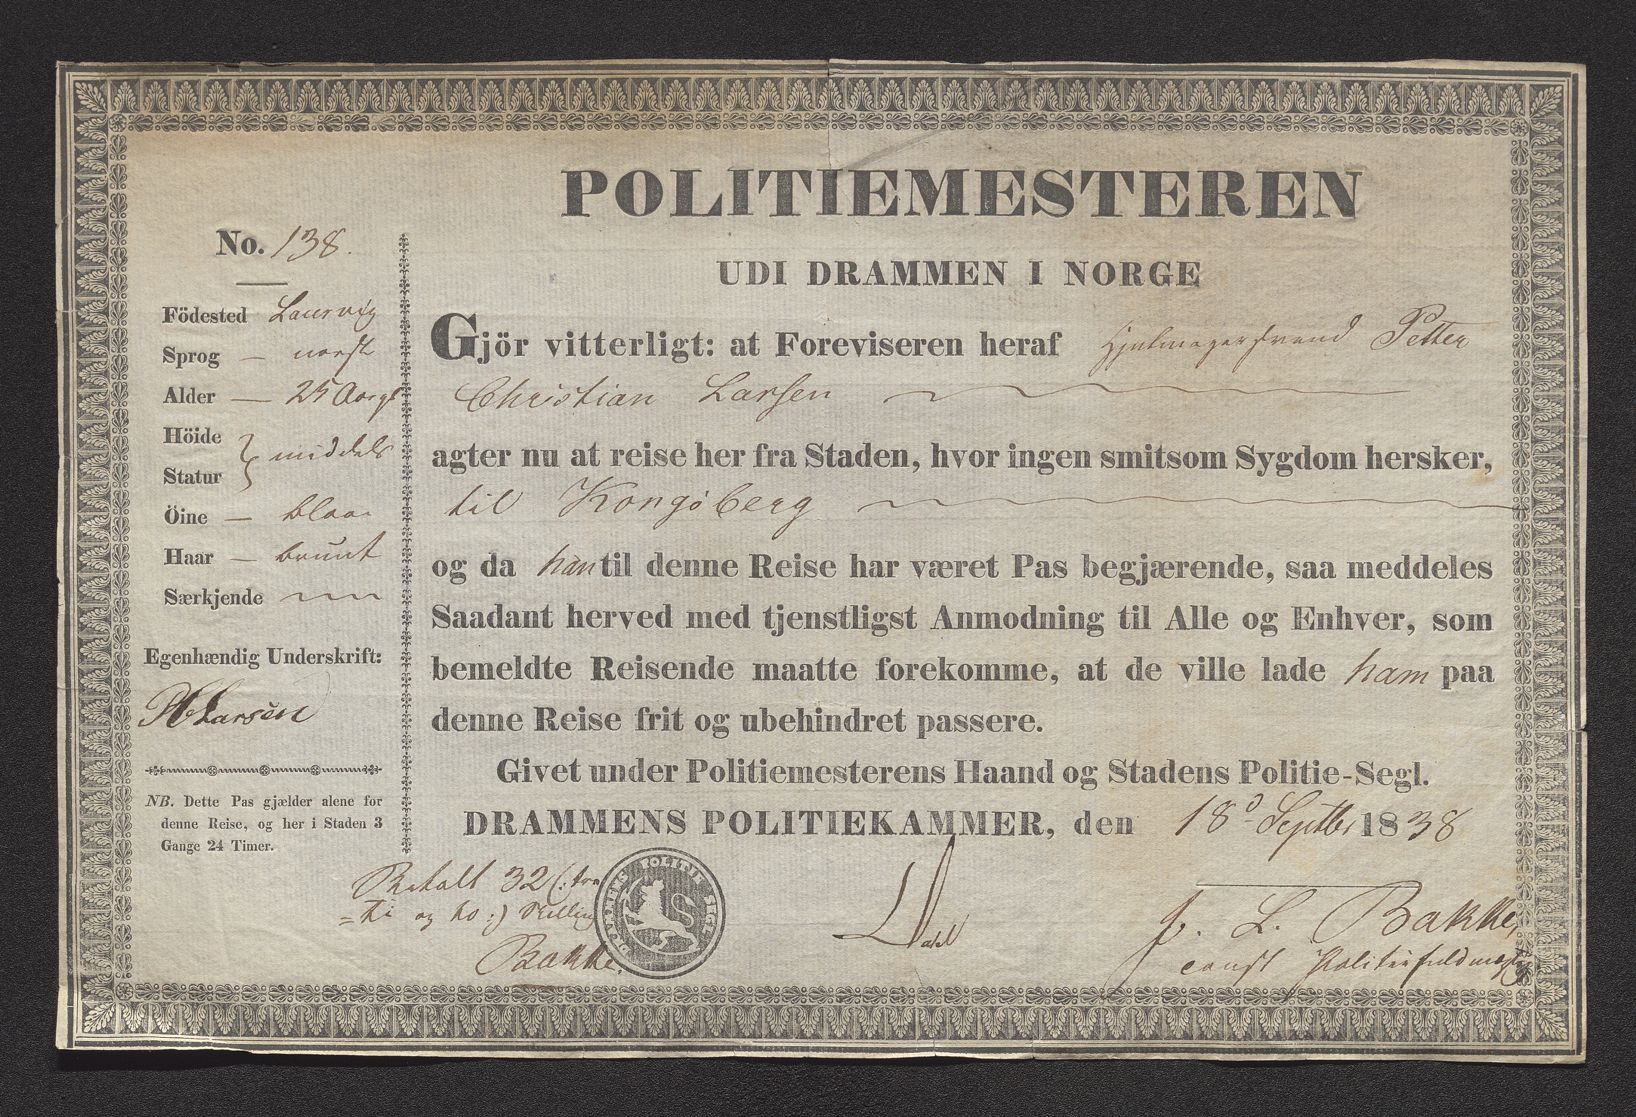 No. 138.
Födested Laurvig
Sprog — norsk
Alder — 25 Aar
Höide
Statur } middels
Öine — blaa
Haar — brunt
Særkjende
Egenhændig Underskrift:
PCLarsen
NB. Dette Pas gjælder alene for
denne Reise, og her i Staden 3
Gange 24 Timer.
POLITIEMESTEREN
UDI DRAMMEN I NORGE
Gjör vitterligt: at Foreviseren heraf Hjulmagersvend Petter
Christian Larsen
agter nu at reise her fra Staden, hvor ingen smitsom Sygdom hersker,
til Kongsberg
og da han til denne Reise har været Pas begjærende, saa meddeles
Saadant herved med tjenstligst Anmodning til Alle og Enhver, som
bemeldte Reisende maatte forekomme, at de ville lade ham paa
denne Reise frit og ubehindret passere.
Givet under Politiemesterens Haand og Stadens Politie-Segl.
DRAMMENS POLITIEKAMMER, den 18d Septbr 1838
Betalt 32 (: tre
=ti og to :) Skilling
Bakke.
J. L. Bakke,
const Politiefuldmægtig